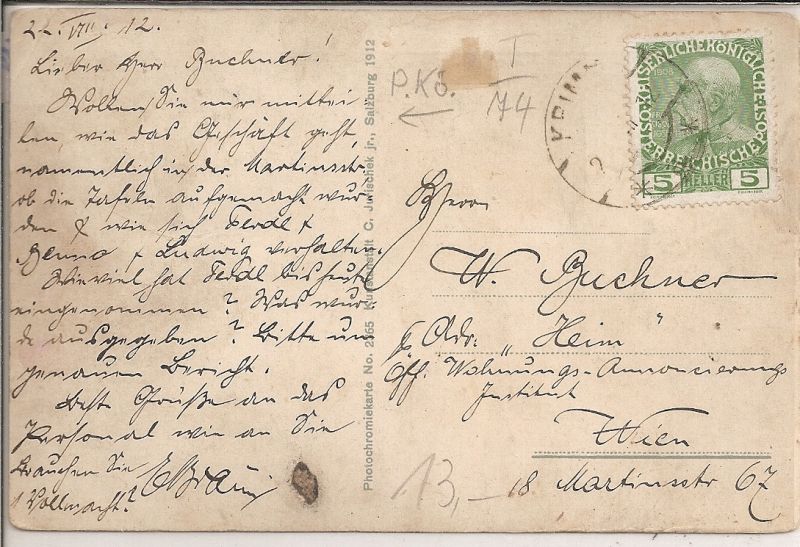 22. VII. 12.
Lieber Herr Buchner!
Wollen Sie mir mittei
len, wie das Geschäft geht,
namentlich in der Martinsstr.
ob die Tafeln aufgemacht wur
den & wie sich Ferdl &
Benno & Ludwig verhalten.
Wieviel hat Ferdl bis heute
eingenommen? Was wur
de ausgegeben? Bitte um
genauen Bericht.
Beste Grüße an das
Personal wie an Sie
Brauchen Sie
1 Vollmacht?
Photochromiekarte No. 2365 Kunstanstalt C. Jurischek jr., Salzburg 1912
P.Kö.
I
74
KRIM
KAISERLICHEKÖNIGLICHE
ÖSTERREICHISCHE
POST
1908
5 HELLER 5
Herrn
W. Buchner
p Adr. „Heim"
Öff. Wohnungs-Annoncierungs
Institut
Wien
18 Martinsstr 67
13,-